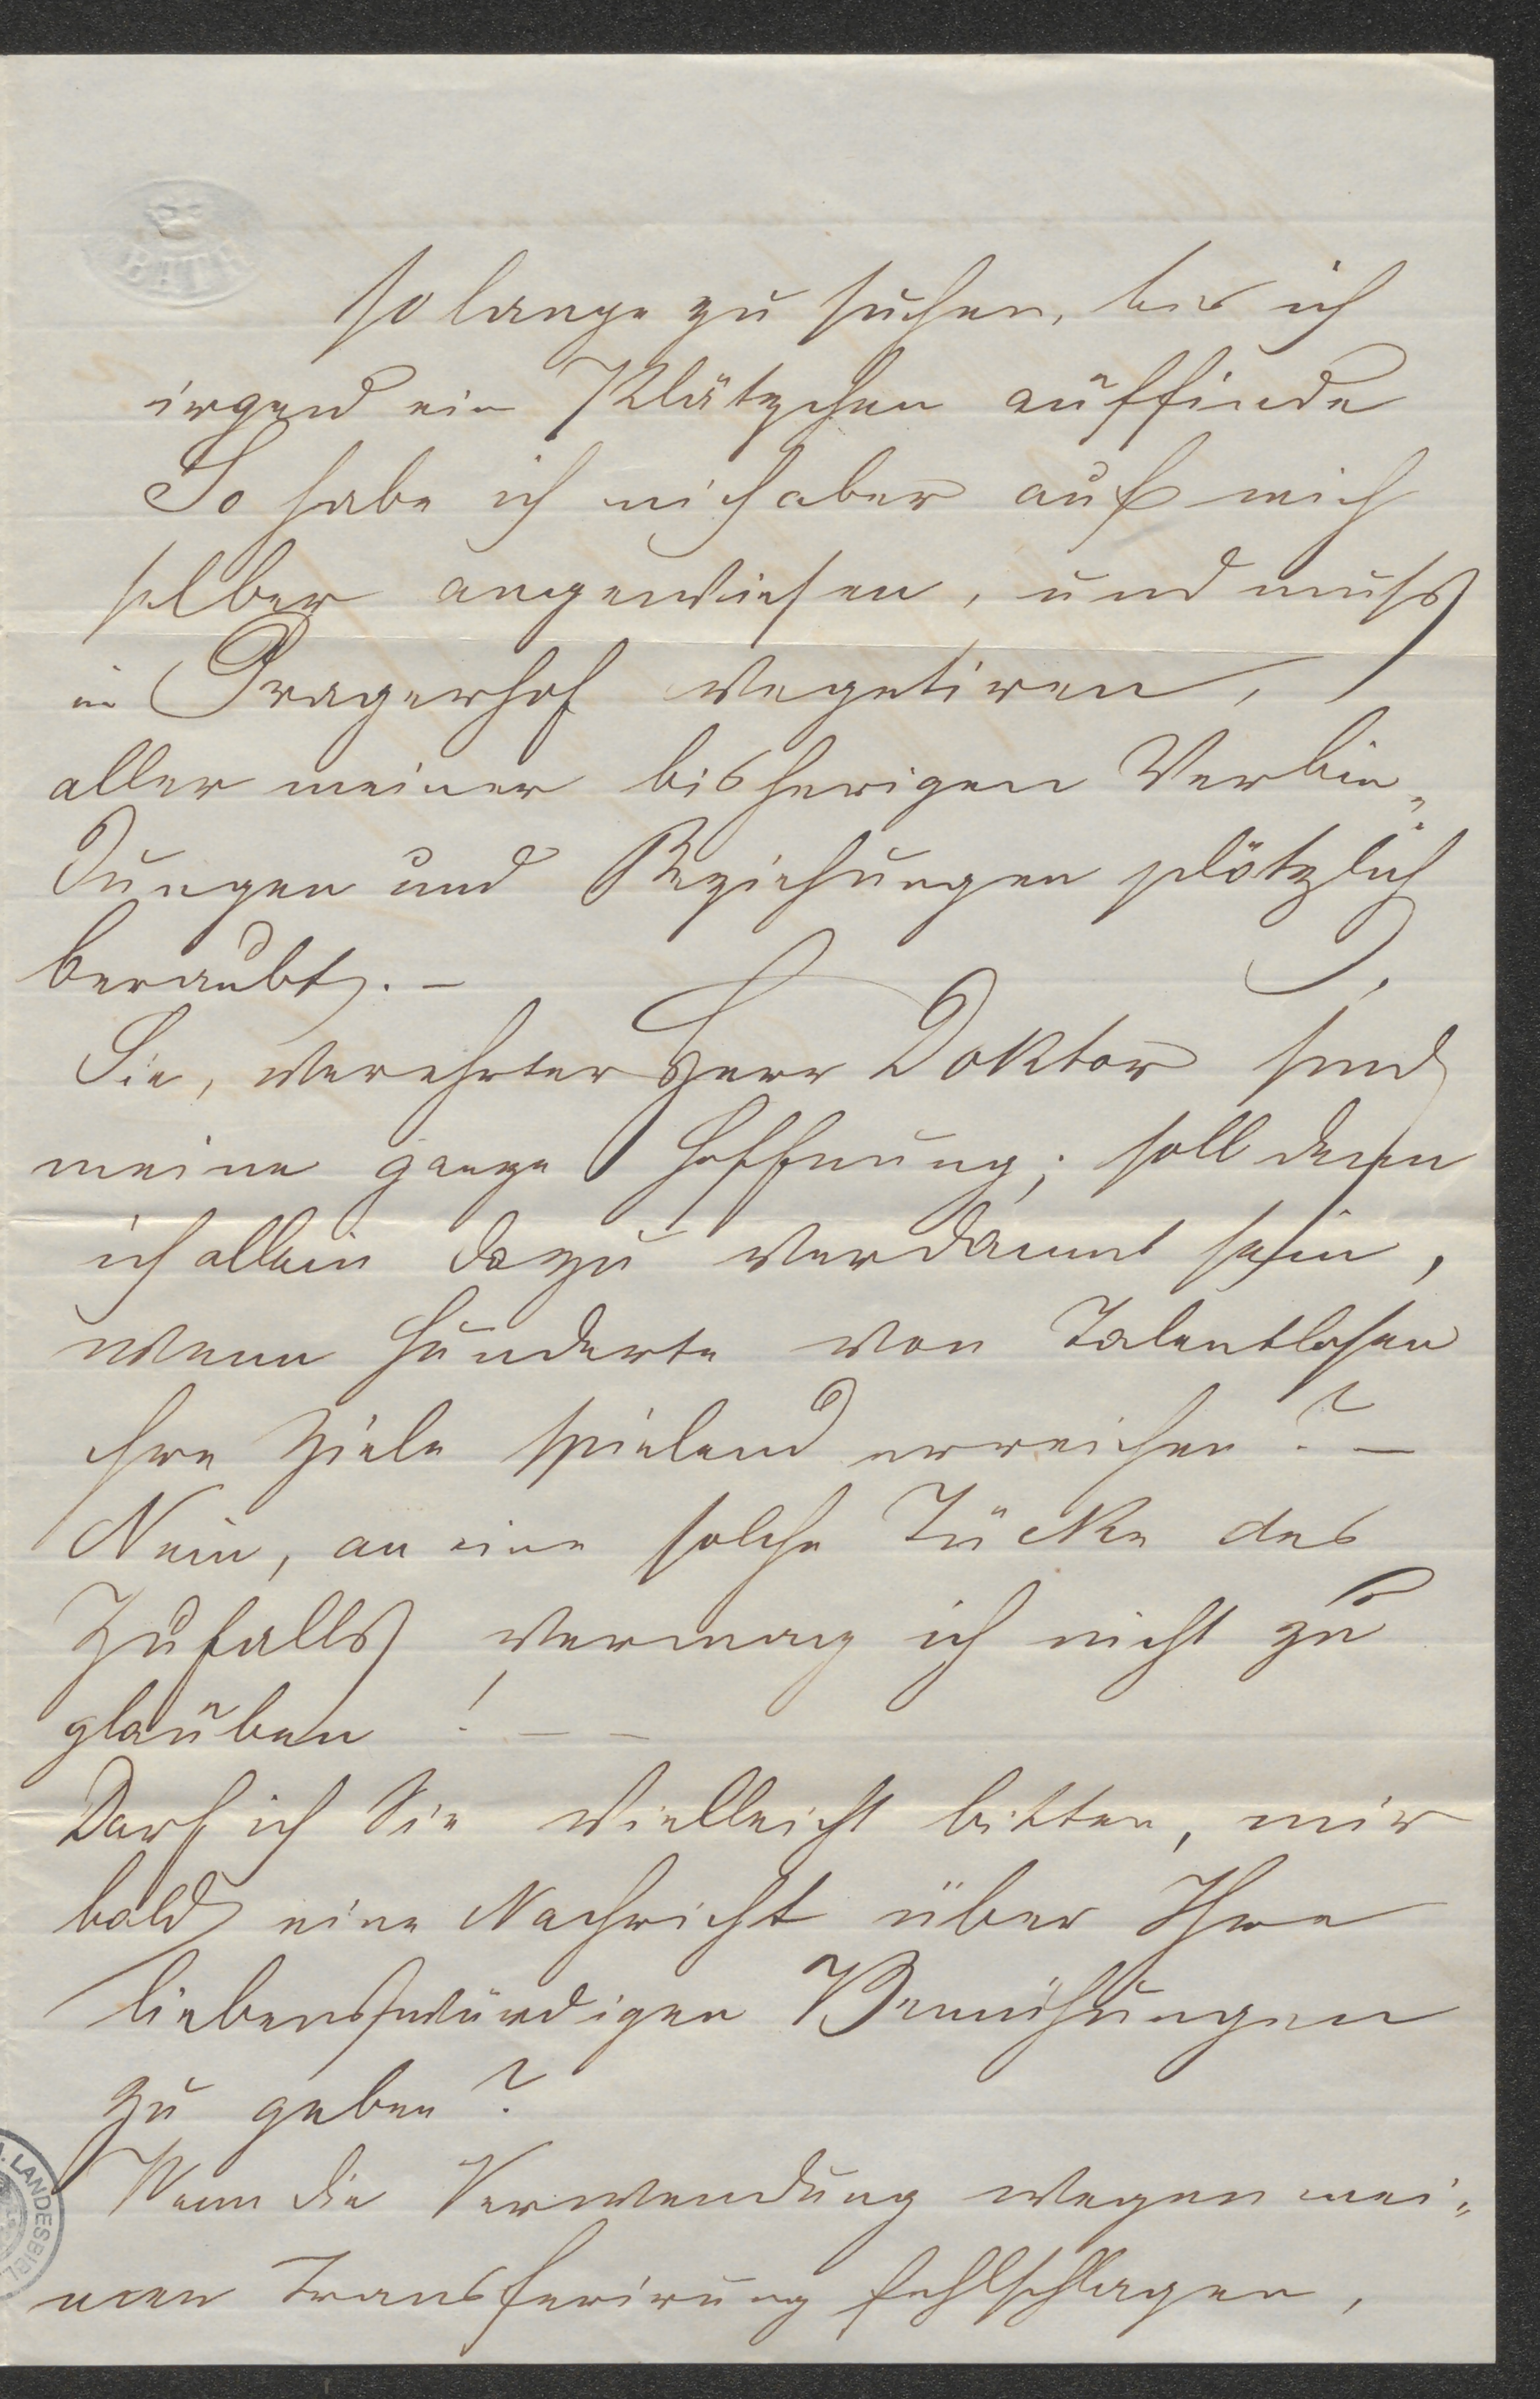 BATH
so lange zu suchen, bis ich
irgend ein Plätzchen auffinde
So habe ich mich aber auf mich
selber angewiesen, und muss
in Pragerhof vegetiren,
aller meiner bisherigen Verbin„
dungen und Beziehungen plötzlich
beraubt. –
Sie, verehrter Herr Doktor sind
meine ganze Hoffnung; soll denn
ich allein dazu verdammt sein,
wenn hunderte von Talentlosen
ihre Ziele spielend erreichen? –
Nein, an eine solche Tücke des
Zufalls vermag ich nicht zu
glauben! – –
Darf ich Sie vielleicht bitten, mir
bald eine Nachricht über Ihre
liebenswürdigen Bemühungen
zu geben?
Wenn die Verwendung wegen mei„
ner Transferirung fehlschlagen,
LANDESBIBL